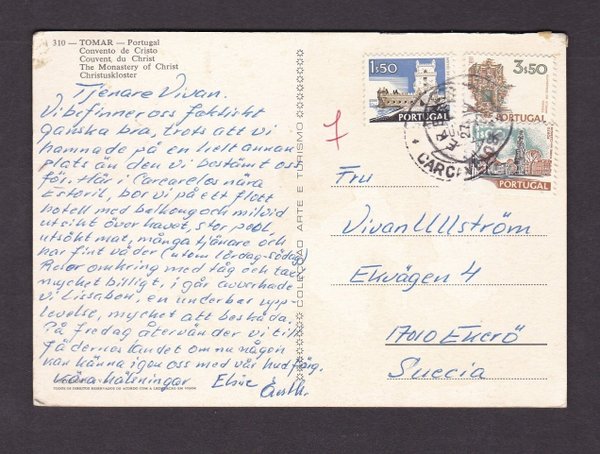 310 — TOMAR — Portugal
Convento de Cristo
Couvent du Christ
The Monastery of Christ
Christuskloster
Tjenare Vivan.
Vi befinner oss faktiskt
ganska bra, trots att vi
hamnade på en helt annan
plats än den vi bestämt oss
för. Här i Carcarelos nära
Estoril, bor vi på ett flott
hotell med belkong och milvid
utsikt över havet, stor pool,
utsökt mat, många tjänare och
har fint väder (utom lördag-södag)
Reser omkring med tåg och taxi
mycket billigt, i går avverkade
vi Lissabon, en underbar upp-
levelse, mycket att beskåda.
På fredag återvänder vi till
fädernoslandet om nu någon
kan känna igen oss med vår hudfärg.
våra hälsningar Elsie
COLECÇÃO ARTE E TURISMO
7
1$50
PORTUGAL
3$50
PORTUGAL
CARCAVELOS
Fru
Vivan Ullström
Ekvägen 4
17010 Ekerö
Suecia